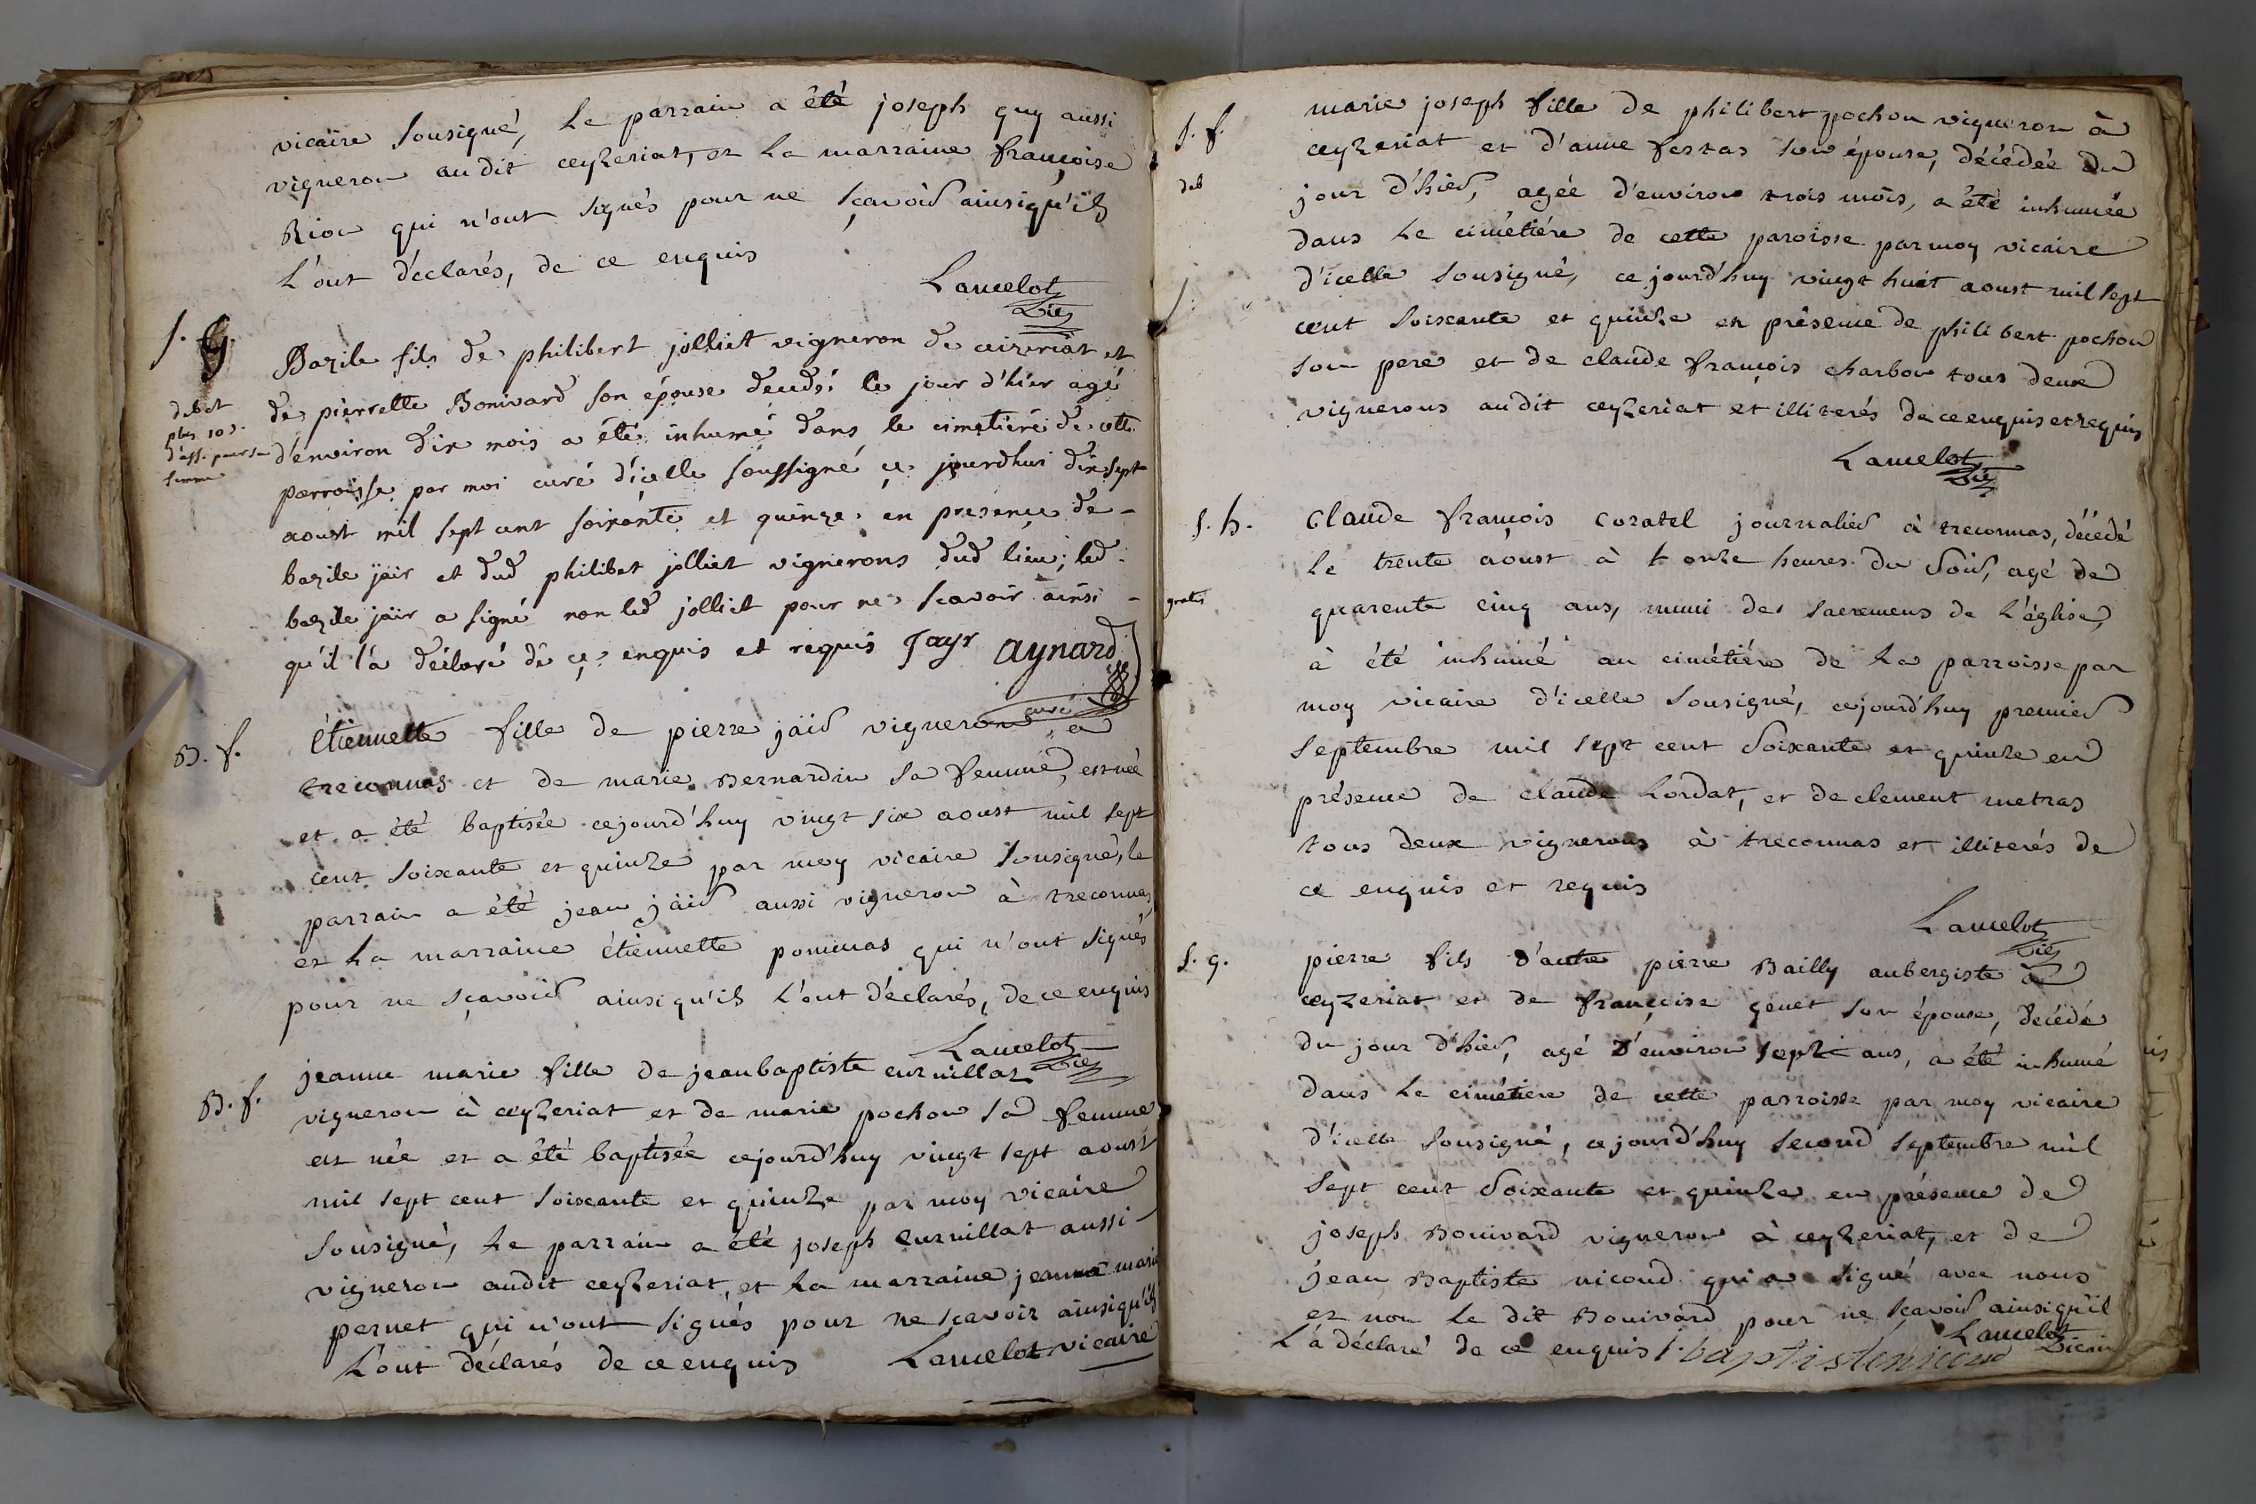 vicaire sousigné, Le parrain a été joseph guy aussi
vigneron au dit ceyzeriat, et La marraine françoise
Rion qui n'ont signés pour ne sçavoir ainsiqu'ils
L'ont déclarés, de ce enquis
Lancelot
Vic
S. G.
Bazile fils de philibert jolliet vigneron de ceizeriat et
debet
de pierrette Bonivard son épouse decedé le jour d'hier agé
d'environ dix mois a été inhumé dans le cimetiére de cette
parroisse par moi curé d'icelle soussigné ce jourdhui dix sept
aoust mil sept cent soixante et quinze en presence de
bazile jair et dud philibert jolliet vignerons dud lieu; led
bazile jair a signé non led jolliet pour ne scavoir ainsi
qu'il l'a déclaré de ce enquis et requis Jayr Aynard
curé
B. f.
étiennette fille de pierre jäir vigneron a
treconnas et de marie Bernardin sa femme, est née
et a été baptisée cejourd'huy vingt six aoust mil sept
cent soixante et quinze par moy vicaire sousigné, le
parrain a été jean jäir aussi vigneron à treconnas
et La marraine étiennette pommas qui n'ont signés
pour ne sçavoir ainsiqu'ils L'ont déclarés, de ce enquis
Lancelot
Vic
B. f.
jeanne marie fille de jeanbaptiste curnillat
vigneron à ceyzeriat et de marie pochon sa femme
est née et a été baptisée cejourd'huy vingt sept aoust
mil sept cent soixante et quinze par moy vicaire
sousigné, Le parrain a été joseph curnillat aussi
vigneron audit ceyzeriat, et La marraine jeanne marie
pernet qui n'ont signés pour ne scavoir ainsiqu'ils
L'ont déclarés de ce enquis Lancelot vicaire
S. f.
marie joseph fille de philibert pochon vigneron à
ceyzeriat et d'anne festas son épouse, décédée du
deb
jour d'hier, agée d'environ trois mois, a été inhumée
dans le cimétiére de cette paroisse par moy vicaire
d'icelle sousigné, ce jourd'huy vingt huit aoust mil sept
cent soixante et quinze en présence de philibert pochon
son pere et de claude françois charbon tous deux
vignerons audit ceyzeriat et illiterés de ce enquis et requis
Lancelot
Vic
S. h.
Claude françois coratel journalier à treconnas, décédé
le trente aoust à onze heures du soir, agé de
gratis
quarente cinq ans, muni des sacremens de L'église,
à été inhumé au cimétiére de La parroisse par
moy vicaire d'icelle sousigné, cejourd'huy premier
septembre mil sept cent soixante et quinze en
présence de claude Lordat, et de clement metras
tous deux vignerons à treconnas et illiterés de
ce enquis et requis
Lancelot
Vic
S. g.
pierre fils d'autre pierre Bailly aubergiste à
ceyzeriat et de françoise genet son épouse, décédé
du jour d'hier, agé d'environ sept ans, a été inhumé
dans Le cimétiére de cette parroisse par moy vicaire
d'icelle sousigné, ce jourd'huy second septembre mil
sept cent soixante et quinze en présence de
joseph Bonivard vigneron à ceyzeriat, et de
jean Baptiste nicoud qui a signé avec nous
et non Le dit Bonivard pour ne sçavoir ainsiqu'il
L'a déclaré de ce enquis j. baptiste nicoud Lancelot
Vicair